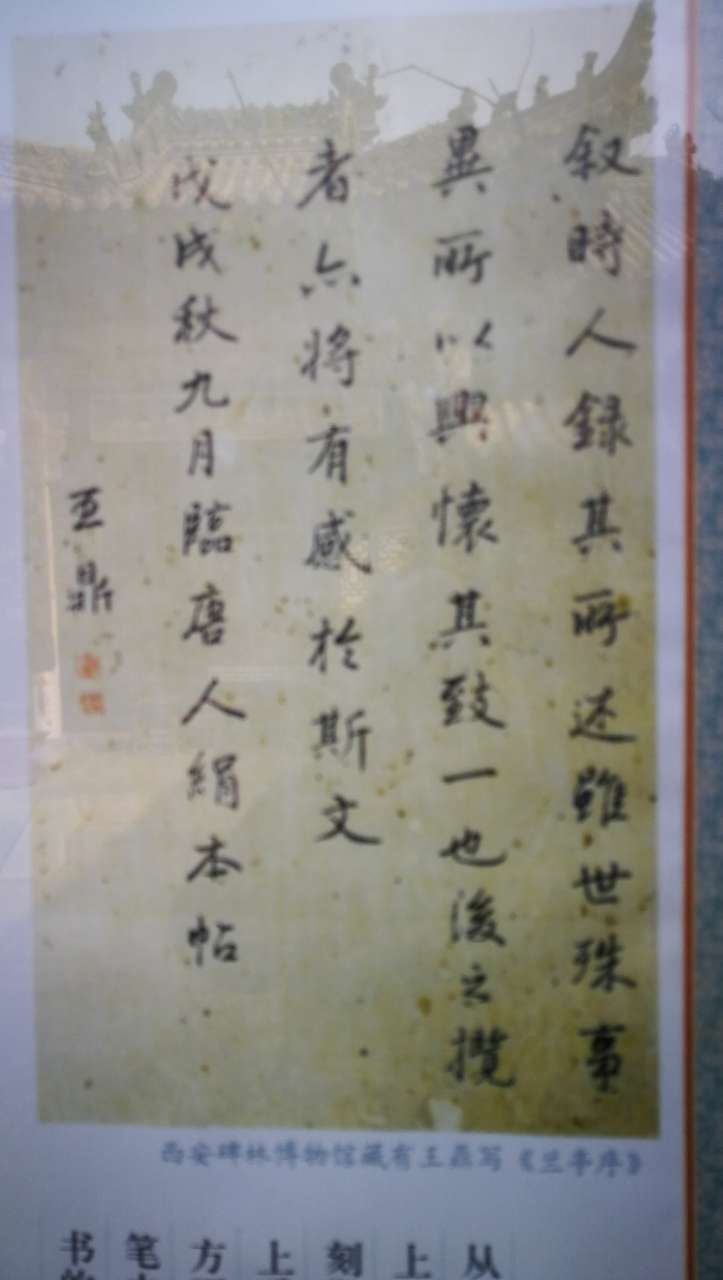 叙時人録其所述雖世殊事
異所以興懷其致一也後之攬
者亦将有感於斯文
戊戌秋九月臨唐人絹本帖
王鼎
西安碑林博物馆藏有王鼎写《兰亭序》
从
上
刻
上
方
笔
书